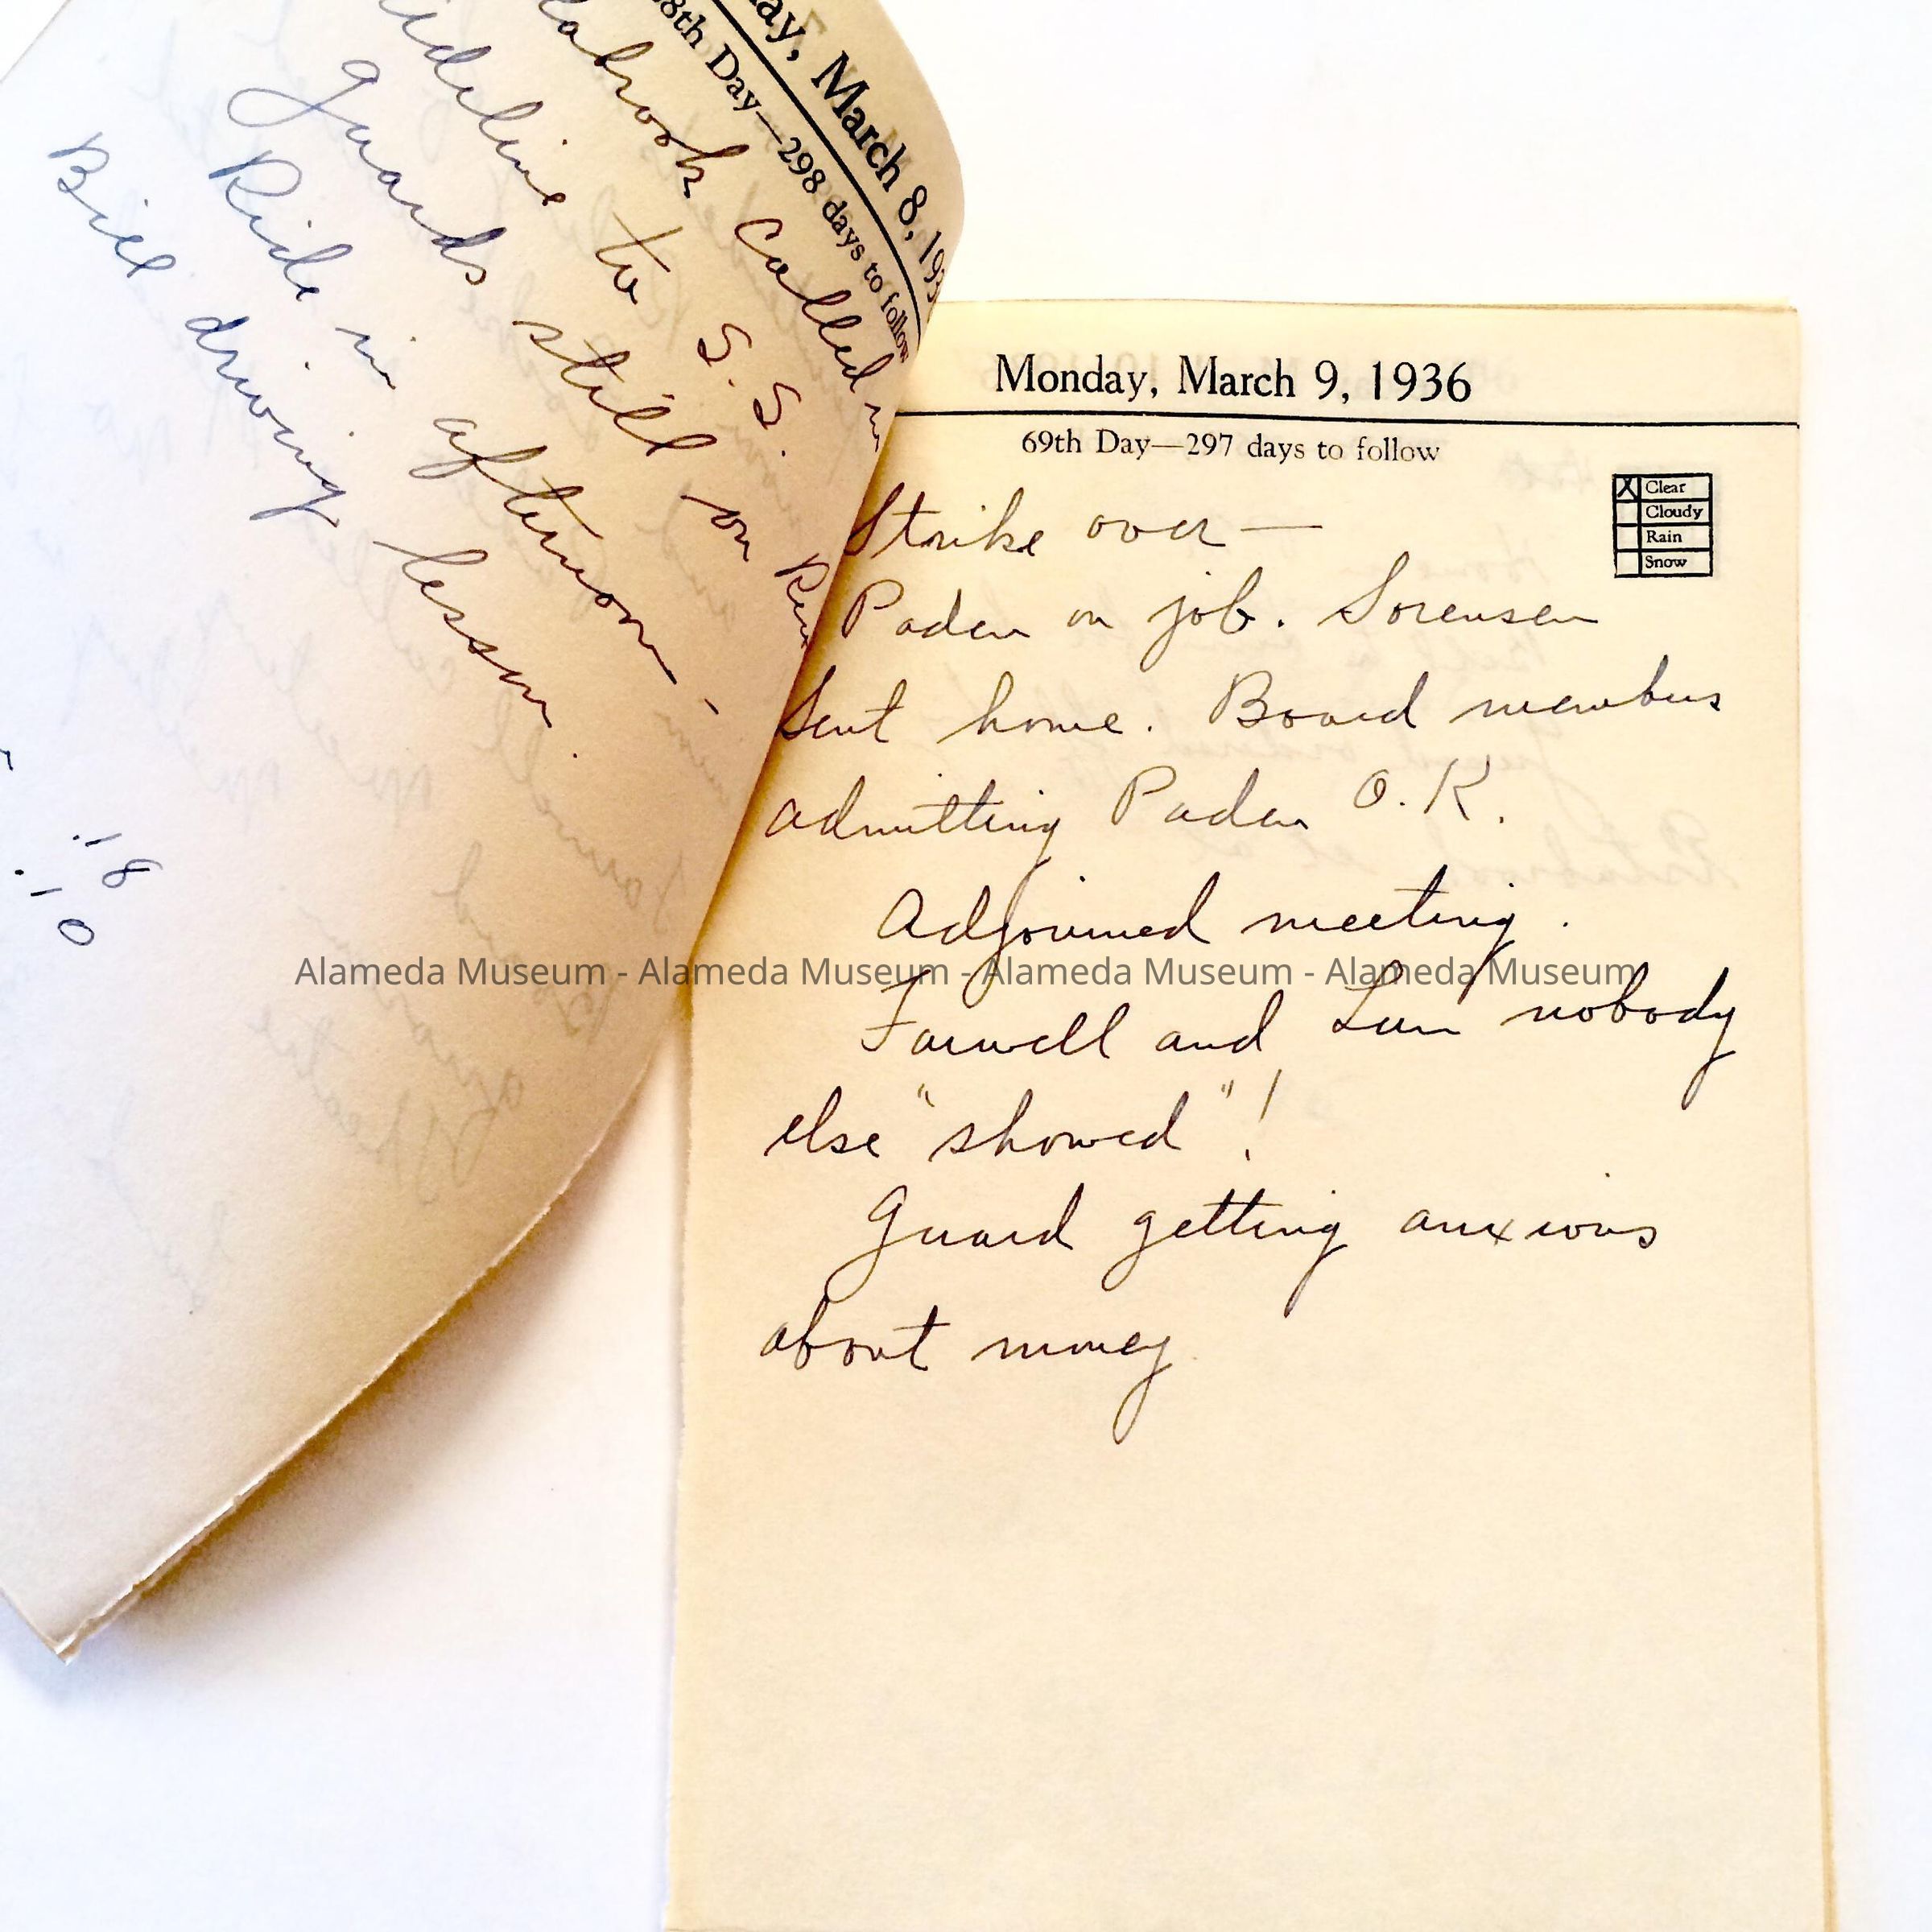 March 8, 193
8th Day—298 days to follow
called in
to S. S.
Guards still on
Ride in afternoon -
Bill driving lesson.
.18
.10
Monday, March 9, 1936
69th Day—297 days to follow
X Clear
Cloudy
Rain
Snow
Strike over —
Paden on job. Sorensen
Sent home. Board members
admitting Paden O.K.
Adjourned meeting.
Alameda Museum - Alameda Museum - Alameda Museum - Alameda Museum
Farwell and Lum nobody
else "showed"!
Guard getting anxious
about money